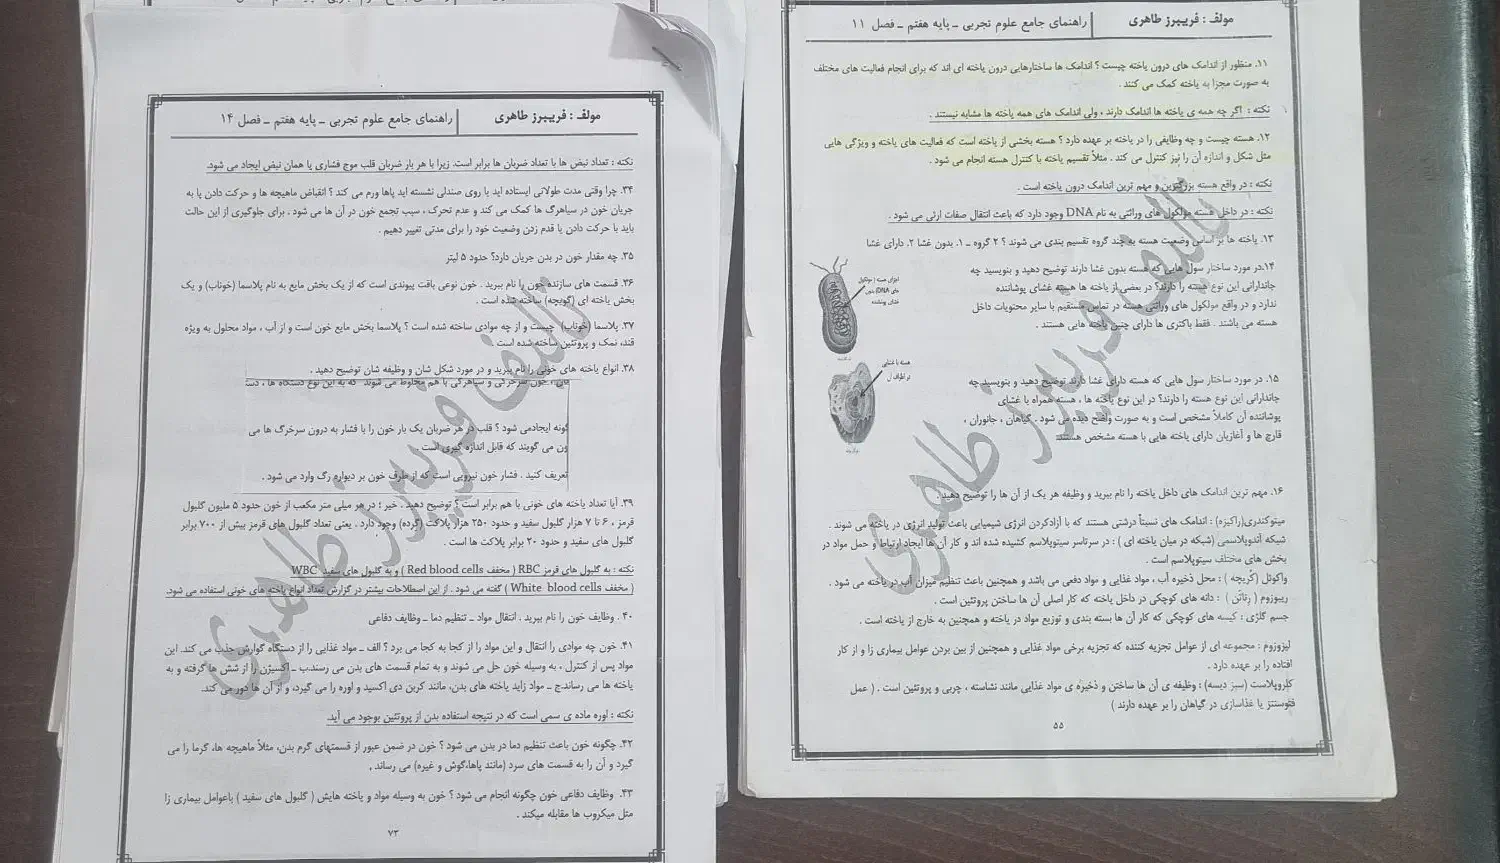 مولف : فریبرز طاهری
راهنمای جامع علوم تجربی ـ پایه هفتم ـ فصل ۱۱
۱۱. منظور از اندامک های درون یاخته چیست ؟ اندامک ها ساختارهایی درون یاخته ای اند که برای انجام فعالیت های مختلف
به صورت مجزا به یاخته کمک می کنند .
نکته : اگر چه همه ی یاخته ها اندامک دارند ، ولی اندامک های همه یاخته ها مشابه نیستند .
۱۲. هسته چیست و چه وظایفی را در یاخته بر عهده دارد ؟ هسته بخشی از یاخته است که فعالیت های یاخته و ویژگی هایی
مثل شکل و اندازه آن را نیز کنترل می کند . مثلاً تقسیم یاخته با کنترل هسته انجام می شود .
نکته : در واقع هسته بزرگترین و مهم ترین اندامک درون یاخته است .
نکته : در داخل هسته مولکول های وراثتی به نام DNA وجود دارد که باعث انتقال صفات ارثی می شود .
۱۳. یاخته ها بر اساس وضعیت هسته به چند گروه تقسیم بندی می شوند ؟ ۲ گروه ـ ۱. بدون غشا ۲. دارای غشا
۱۴.در مورد ساختار سول هایی که هسته بدون غشا دارند توضیح دهید و بنویسید چه
جاندارانی این نوع هسته را دارند؟ در بعضی از یاخته ها هسته غشای پوشاننده
ندارد و در واقع مولکول های وراثتی هسته در تماس مستقیم با سایر محتویات داخل
هسته می باشند . فقط باکتری ها دارای چنین یاخته هایی هستند .
اجزای هسته ( مولکول
های DNA) بدون
غشای پوشاننده
هسته با غشایی
در اطراف آن
۱۵. در مورد ساختار سول هایی که هسته دارای غشا دارند توضیح دهید و بنویسید چه
جاندارانی این نوع هسته را دارند؟ در این نوع یاخته ها ، هسته همراه با غشای
پوشاننده آن کاملاً مشخص است و به صورت واضح دیده می شود . گیاهان ، جانوران ،
قارچ ها و آغازیان دارای یاخته هایی با هسته مشخص هستند
۱۶. مهم ترین اندامک های داخل یاخته را نام ببرید و وظیفه هر یک از آن ها را توضیح دهید .
میتوکندری(راکیزه) : اندامک های نسبتاً درشتی هستند که با آزادکردن انرژی شیمیایی باعث تولید انرژی در یاخته می شوند .
شبکه آندوپلاسمی (شبکه در میان یاخته ای ) : در سرتاسر سیتوپلاسم کشیده شده اند و کار آن ها ایجاد ارتباط و حمل مواد در
بخش های مختلف سیتوپلاسم است .
واکوئل (کُریچه ) : محل ذخیره آب ، مواد غذایی و مواد دفعی می باشد و همچنین باعث تنظیم میزان آب در یاخته می شود .
ریبوزوم ( رِناتَن ) : دانه های کوچکی در داخل یاخته که کار اصلی آن ها ساختن پروتئین است .
جسم گلژی : کیسه های کوچکی که کار آن ها بسته بندی و توزیع مواد در یاخته و همچنین به خارج از یاخته است .
لیزوزوم : مجموعه ای از عوامل تجزیه کننده که تجزیه برخی مواد غذایی و همچنین از بین بردن عوامل بیماری زا و از کار
افتاده را بر عهده دارد .
کلروپلاست (سبز دیسه) : وظیفه ی آن ها ساختن و ذخیره ی مواد غذایی مانند نشاسته ، چربی و پروتئین است . ( عمل
فتوسنتز یا غذاسازی در گیاهان را بر عهده دارند )
۵۵
تالیف فریبرز طاهری
مولف : فریبرز طاهری
راهنمای جامع علوم تجربی ـ پایه هفتم ـ فصل ۱۴
نکته : تعداد نبض ها با تعداد ضربان ها برابر است. زیرا با هر بار ضربان قلب موج فشاری یا همان نبض ایجاد می شود.
۳۴. چرا وقتی مدت طولانی ایستاده اید یا روی صندلی نشسته اید پاها ورم می کند ؟ انقباض ماهیچه ها و حرکت دادن پا به
جریان خون در سیاهرگ ها کمک می کند و عدم تحرک ، سبب تجمع خون در آن ها می شود . برای جلوگیری از این حالت
باید با حرکت دادن یا قدم زدن وضعیت خود را برای مدتی تغییر دهیم .
۳۵. چه مقدار خون در بدن جریان دارد؟ حدود ۵ لیتر
۳۶. قسمت های سازنده خون را نام ببرید . خون نوعی بافت پیوندی است که از یک بخش مایع به نام پلاسما (خوناب) و یک
بخش یاخته ای (گویچه) ساخته شده است .
۳۷. پلاسما (خوناب) چیست و از چه موادی ساخته شده است ؟ پلاسما بخش مایع خون است و از آب ، مواد محلول به ویژه
قند، نمک و پروتئین ساخته شده است .
۳۸. انواع یاخته های خونی را نام ببرید و در مورد شکل شان و وظیفه شان توضیح دهید .
خون سرخرگی و سیاهرگی با هم مخلوط می شوند که به این نوع دستگاه ها ، دست
گونه ایجادمی شود ؟ قلب در هر ضربان یک بار خون را با فشار به درون سرخرگ ها می
ون می گویند که قابل اندازه گیری است .
تعریف کنید . فشار خون نیرویی است که از طرف خون بر دیواره رگ وارد می شود .
۳۹. آیا تعداد یاخته های خونی با هم برابر است ؟ توضیح دهید . خیر ؛ در هر میلی متر مکعب از خون حدود ۵ میلیون گلبول
قرمز ، ۶ تا ۷ هزار گلبول سفید و حدود ۲۵۰ هزار پلاکت (گرده) وجود دارد . یعنی تعداد گلبول های قرمز بیش از ۷۰۰ برابر
گلبول های سفید و حدود ۲۰ برابر پلاکت ها است .
نکته : به گلبول های قرمز RBC ( مخفف Red blood cells ) و به گلبول های سفید WBC
( مخفف White blood cells ) گفته می شود . از این اصطلاحات بیشتر در گزارش تعداد انواع یاخته های خونی استفاده می شود.
۴۰. وظایف خون را نام ببرید . انتقال مواد ـ تنظیم دما ـ وظایف دفاعی
۴۱. خون چه موادی را انتقال و این مواد را از کجا به کجا می برد ؟ الف ـ مواد غذایی را از دستگاه گوارش جذب می کند. این
مواد پس از کنترل ، به وسیله خون حل می شوند و به تمام قسمت های بدن می رسند.ب ـ اکسیژن را از شش ها گرفته و به
یاخته ها می رساند.ج ـ مواد زاید یاخته های بدن، مانند کربن دی اکسید و اوره را می گیرد، و از آن ها دور می کند.
نکته : اوره ماده ی سمی است که در نتیجه استفاده بدن از پروتئین بوجود می آید.
۴۲. چگونه خون باعث تنظیم دما در بدن می شود ؟ خون در ضمن عبور از قسمتهای گرم بدن، مثلاً ماهیچه ها، گرما را می
گیرد و آن را به قسمت های سرد (مانند پاها،گوش و غیره) می رساند .
۴۳. وظایف دفاعی خون چگونه انجام می شود ؟ خون به وسیله مواد و یاخته هایش ( گلبول های سفید ) باعوامل بیماری زا
مثل میکروب ها مقابله میکند .
۷۳
تالیف فریبرز طاهری